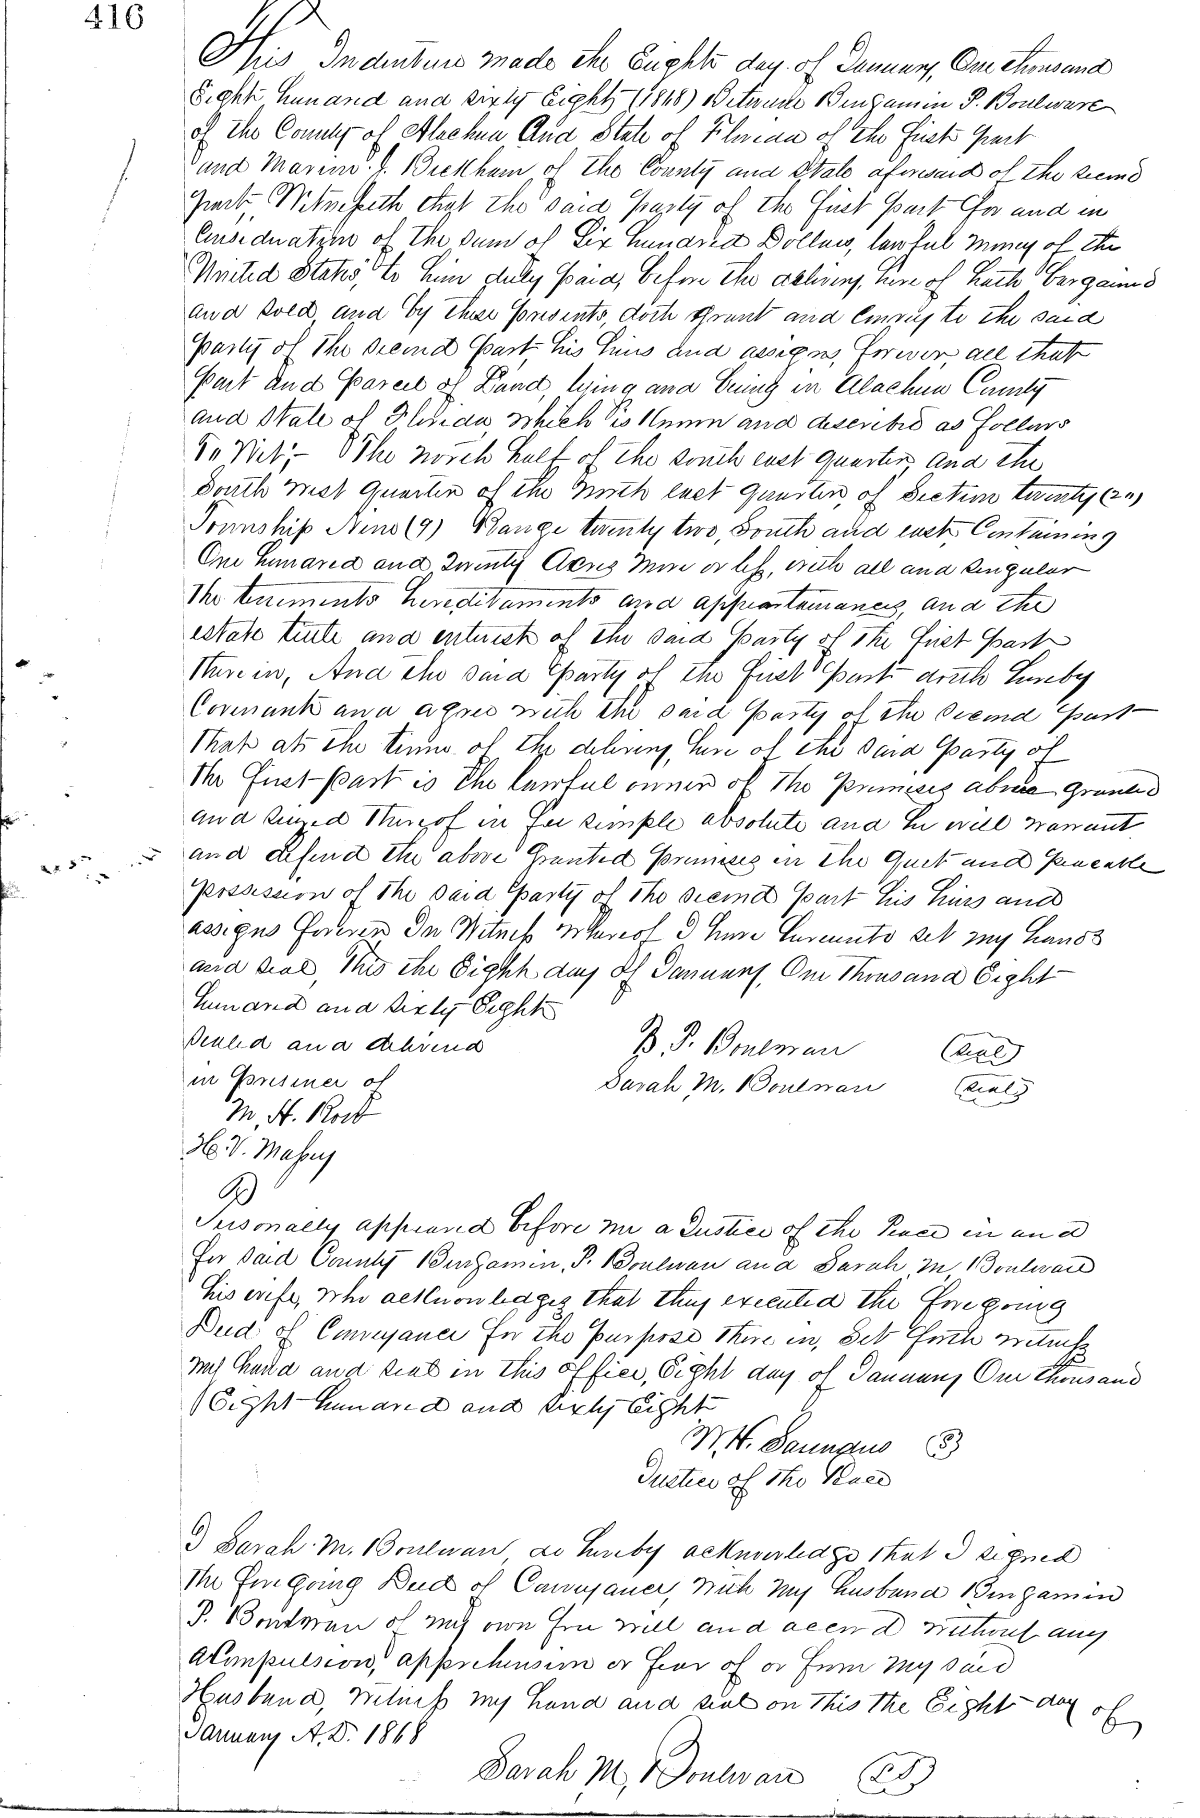 416
This Indenture made the Eight day of January, One thousand
Eight hundred and sixty Eight (1868) Between Benjamin P. Boulware
of the County of Alachua And State of Florida of the first part
and Marion J. Bickham of the County and State aforesaid of the second
part, Witnesseth that the said party of the first part for and in
Consideration of the sum of Six hundred Dollars, lawful money of the
United States, to him duly paid, before the delivery, here of hath bargained
and sold, and by these presents, doth grant and convey to the said
party of the second part his heirs and assigns, forever, all that
part and parcel of Land, lying and being in Alachua County
and State of Florida which is Known and described as follows
To Wit;- The north half of the south east quarter, and the
South west quarter of the north east quarter, of Section twenty (20)
Township Nine (9) Range twenty two, South and east, Containing
One hundred and twenty Acres more or less, with all and singular
the tenements hereditaments and appurtenances, and the
estate title and interest of the said party of the first part
therein, And the said party of the first part doth hereby
Covenant and agree with the said party of the second part
that at the time of the delivery, here of the said party of
the first part is the lawful owner of the premises above granted
and seized thereof in fee simple absolute and he will warrant
and defend the above Granted premises in the quiet and peaceable
possession of the said party of the second part his heirs and
assigns forever In Witness Whereof I have hereunto set my hands
and seal, This the Eight day of January, One thousand Eight
hundred and sixty Eight
Sealed and delivered
B. P. Boulware (Seal)
in presence of
Sarah M. Boulware (Seal)
M. H.
H. V. Massey
Personally appeared before me a Justice of the Peace in and
for said County Benjamin, P. Boulware and Sarah M. Boulware
his wife, who acknowledges that they executed the foregoing
Deed of Conveyance for the purpose there in, Set forth witness
my hand and seal in this office, Eight day of January One thousand
Eight hundred and sixty Eight
W. H. Saunders (S)
Justice of the Peace
I Sarah M. Boulware, do hereby acknowledge that I signed
the foregoing Deed of Conveyance, with my husband Benjamin
P. Boulware of my own free will and accord without any
Compulsion, apprehension or fear of or from my said
Husband, Witness my hand and seal on this the Eight day of
January A.D. 1868
Sarah M. Boulware (LS)